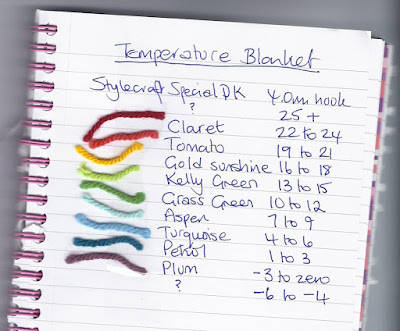 Temperature Blanket
Stylecraft Special DK 4.0mm hook
? 25 +
Claret 22 to 24
Tomato 19 to 21
Gold sunshine 16 to 18
Kelly Green 13 to 15
Grass Green 10 to 12
Aspen 7 to 9
Turquoise 4 to 6
Petrol 1 to 3
Plum -3 to zero
? -6 to -4